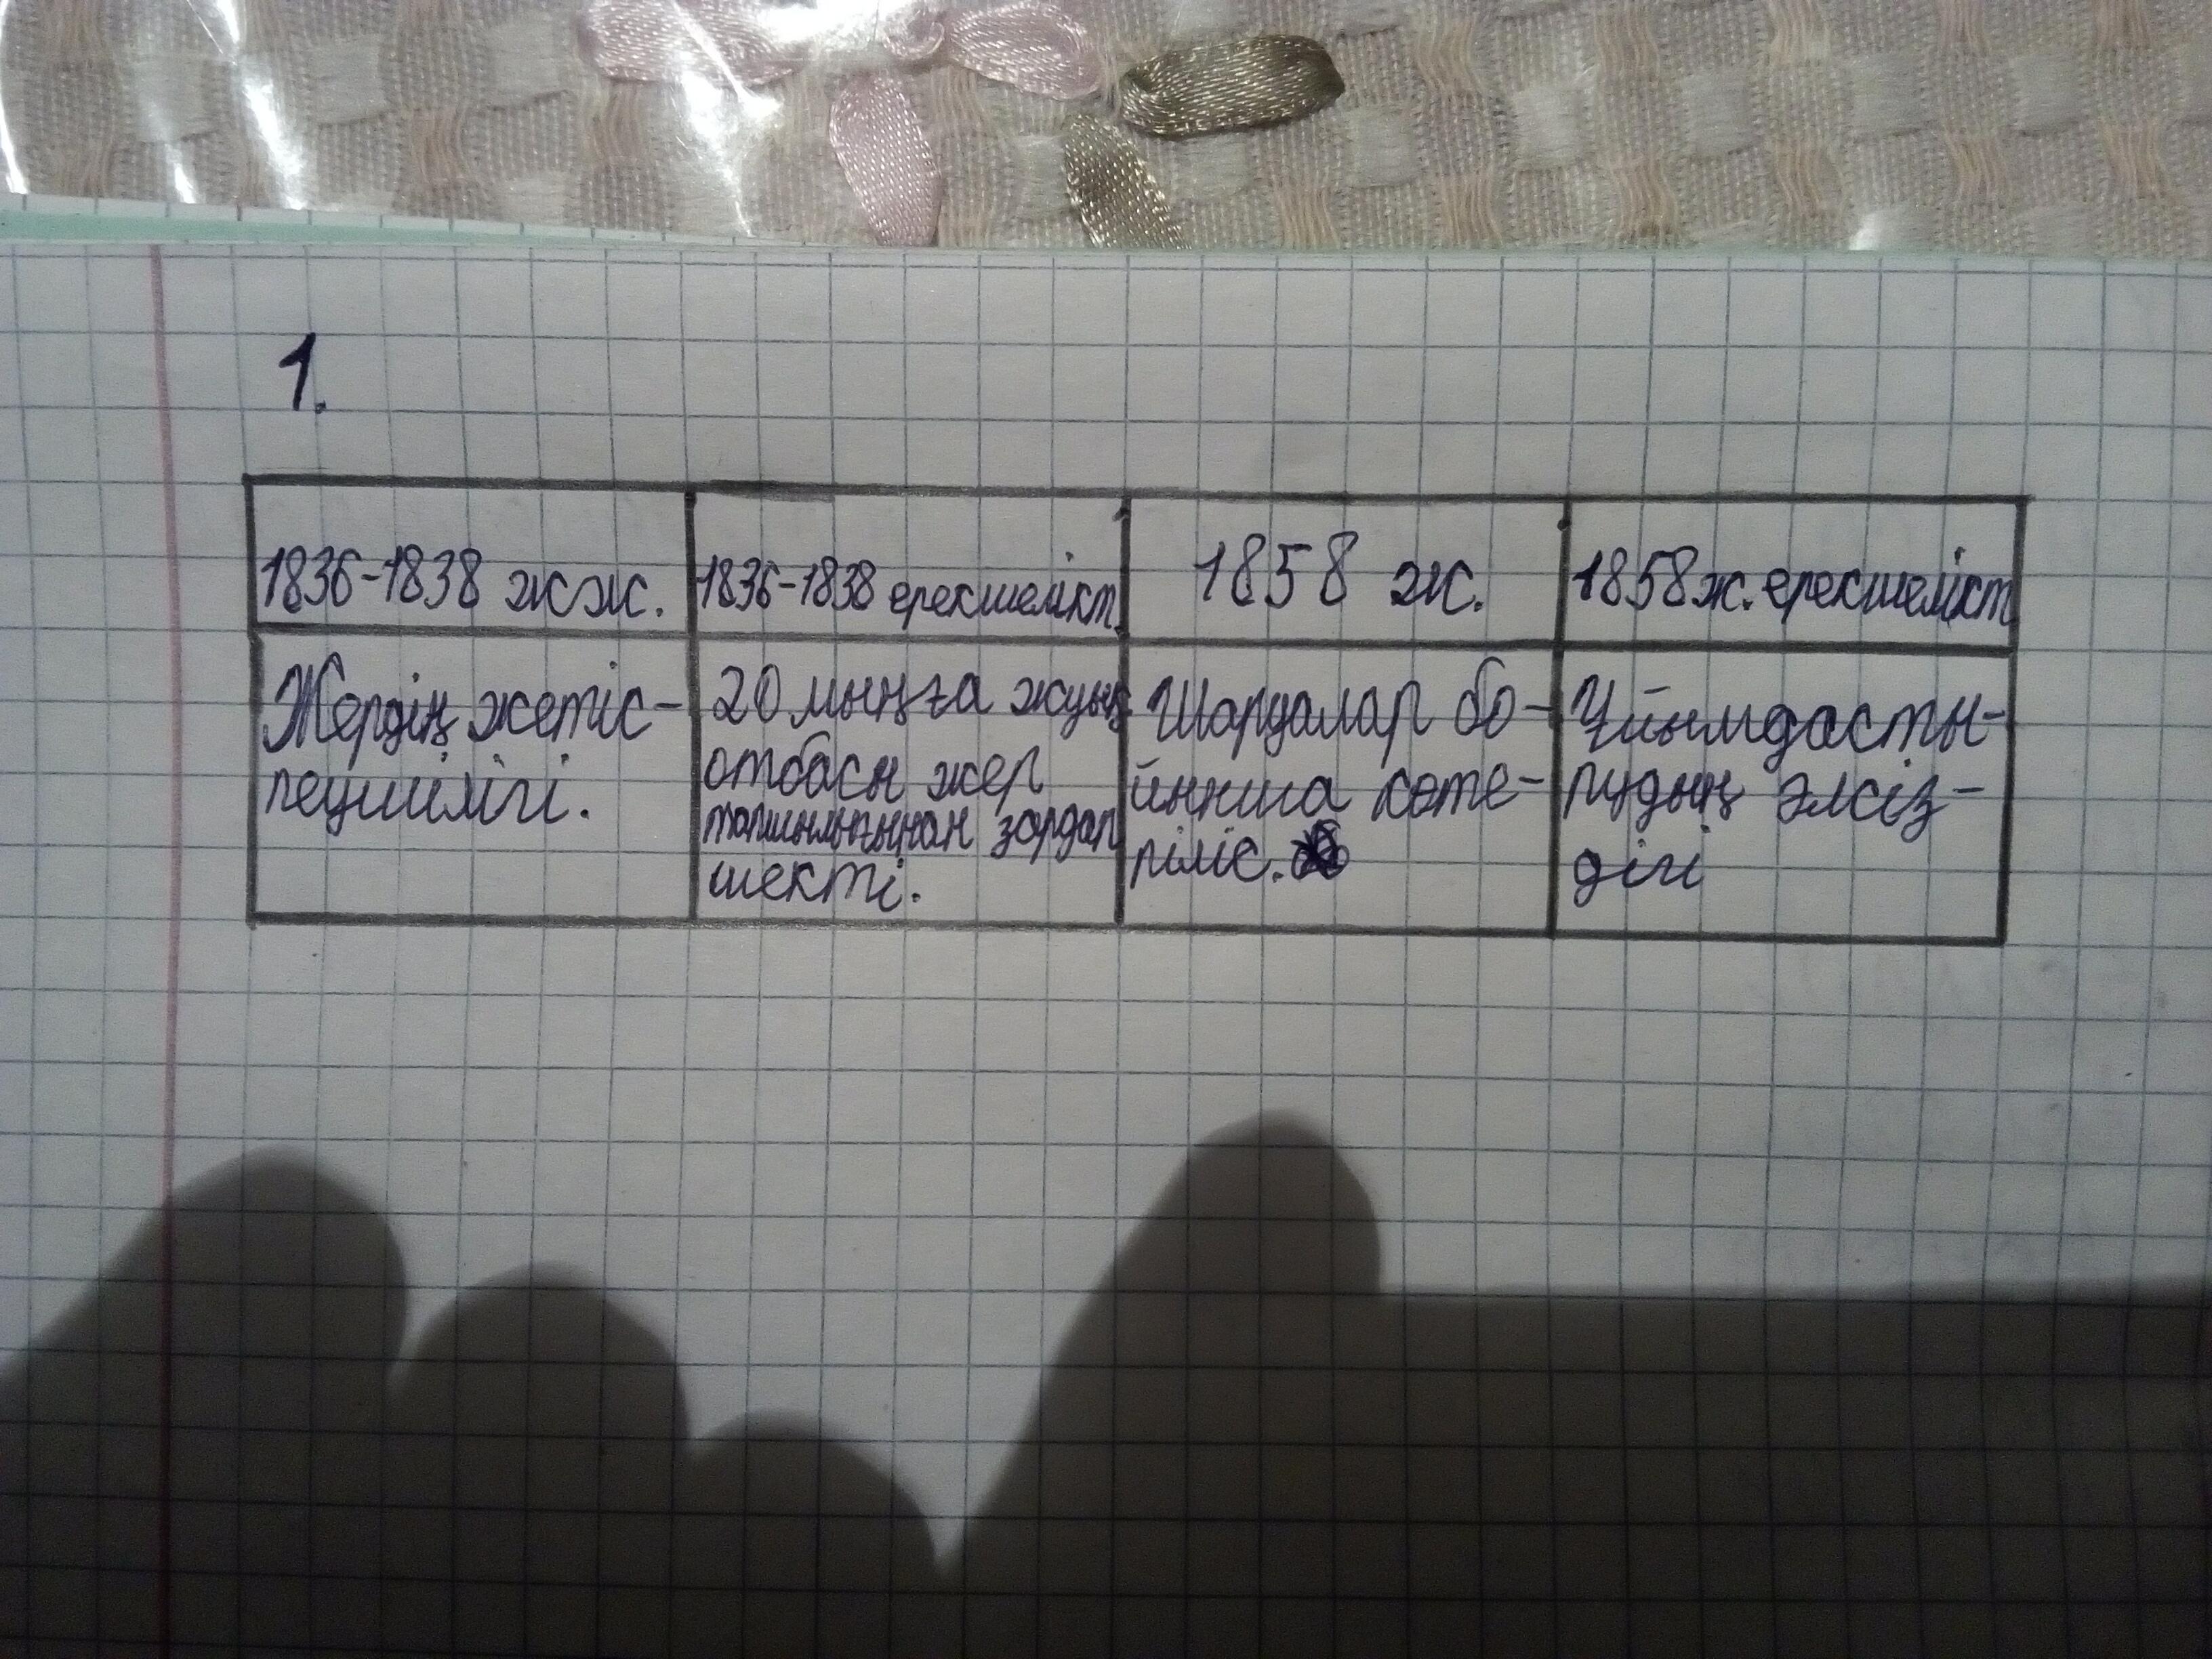 1.
1836-1838 жж.
1836-1838 ерекшелікт.
1858 ж.
1858ж. ерекшелікт
Жердің жетіс-
пеушілігі.
20 мыңға жуық
отбасы жер
тапшылығынан зардап
шекті.
Шаруалар бо-
йынша көте-
ріліс.
Ұйымдасты-
рудың әлсіз-
дігі